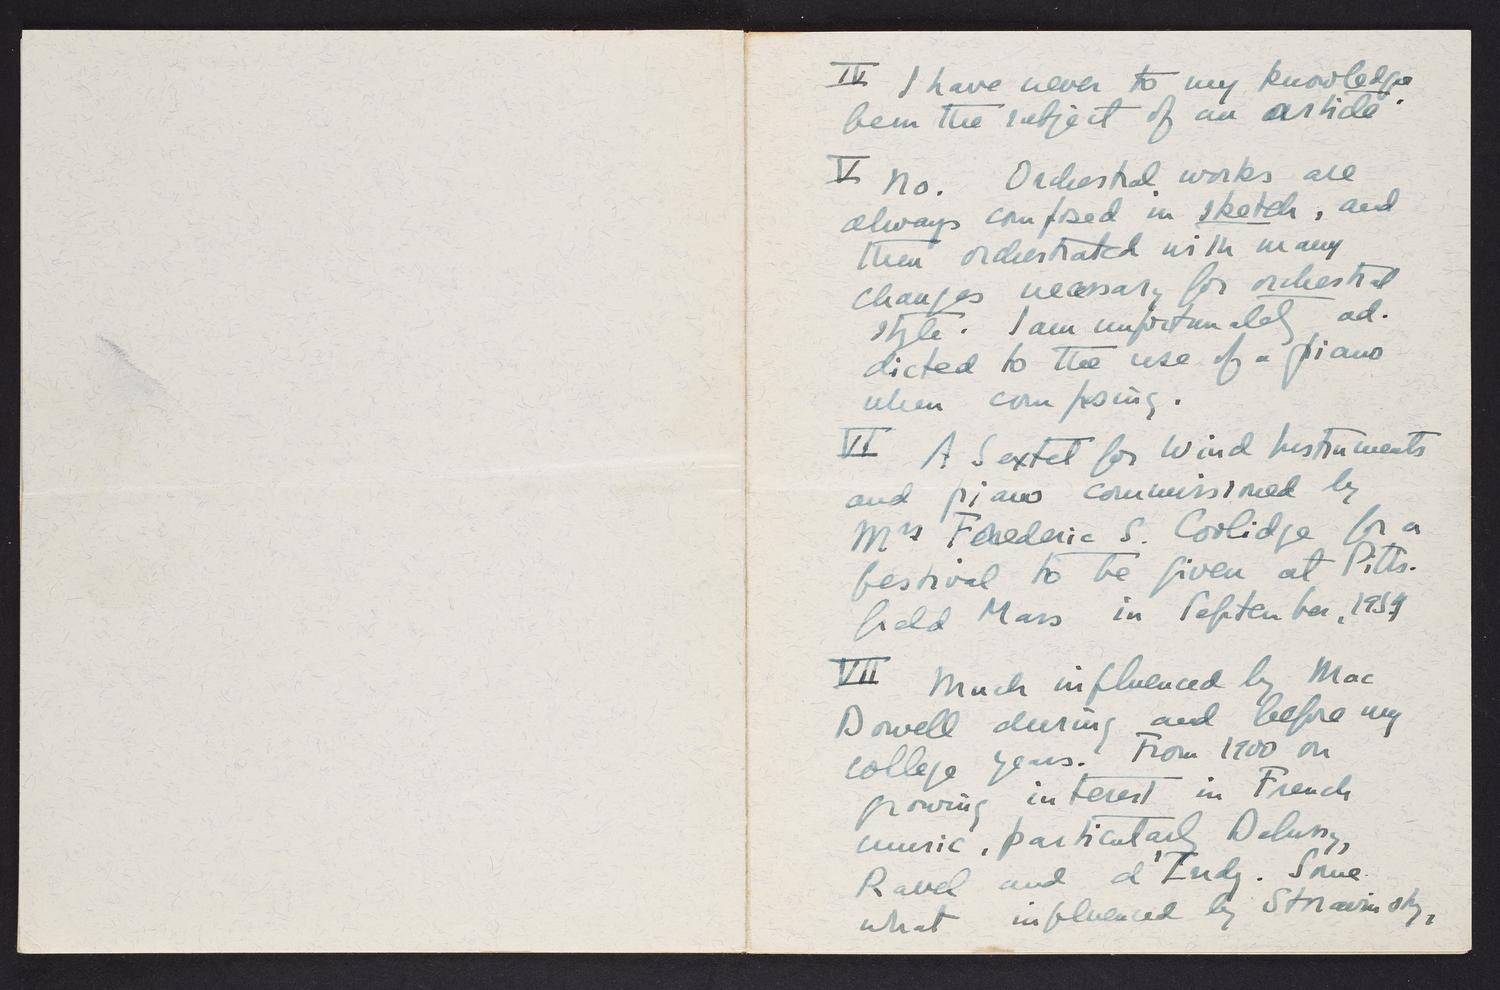 IV I have never to my knowledge
been the subject of an article.
V No. Orchestral works are
always composed in sketch, and
then orchestrated with many
changes necessary for orchestral
style. I am unfortunately ad-
dicted to the use of a piano
when composing.
VI A Sextet for Wind Instruments
and piano commissioned by
Mrs Frederic S. Coolidge for a
festival to be given at Pitts-
field Mass in September, 1934
VII Much influenced by Mac
Dowell during and before my
college years. From 1900 on
growing interest in French
music, particularly Debussy,
Ravel and d'Indy. Some
what influenced by Stravinsky,